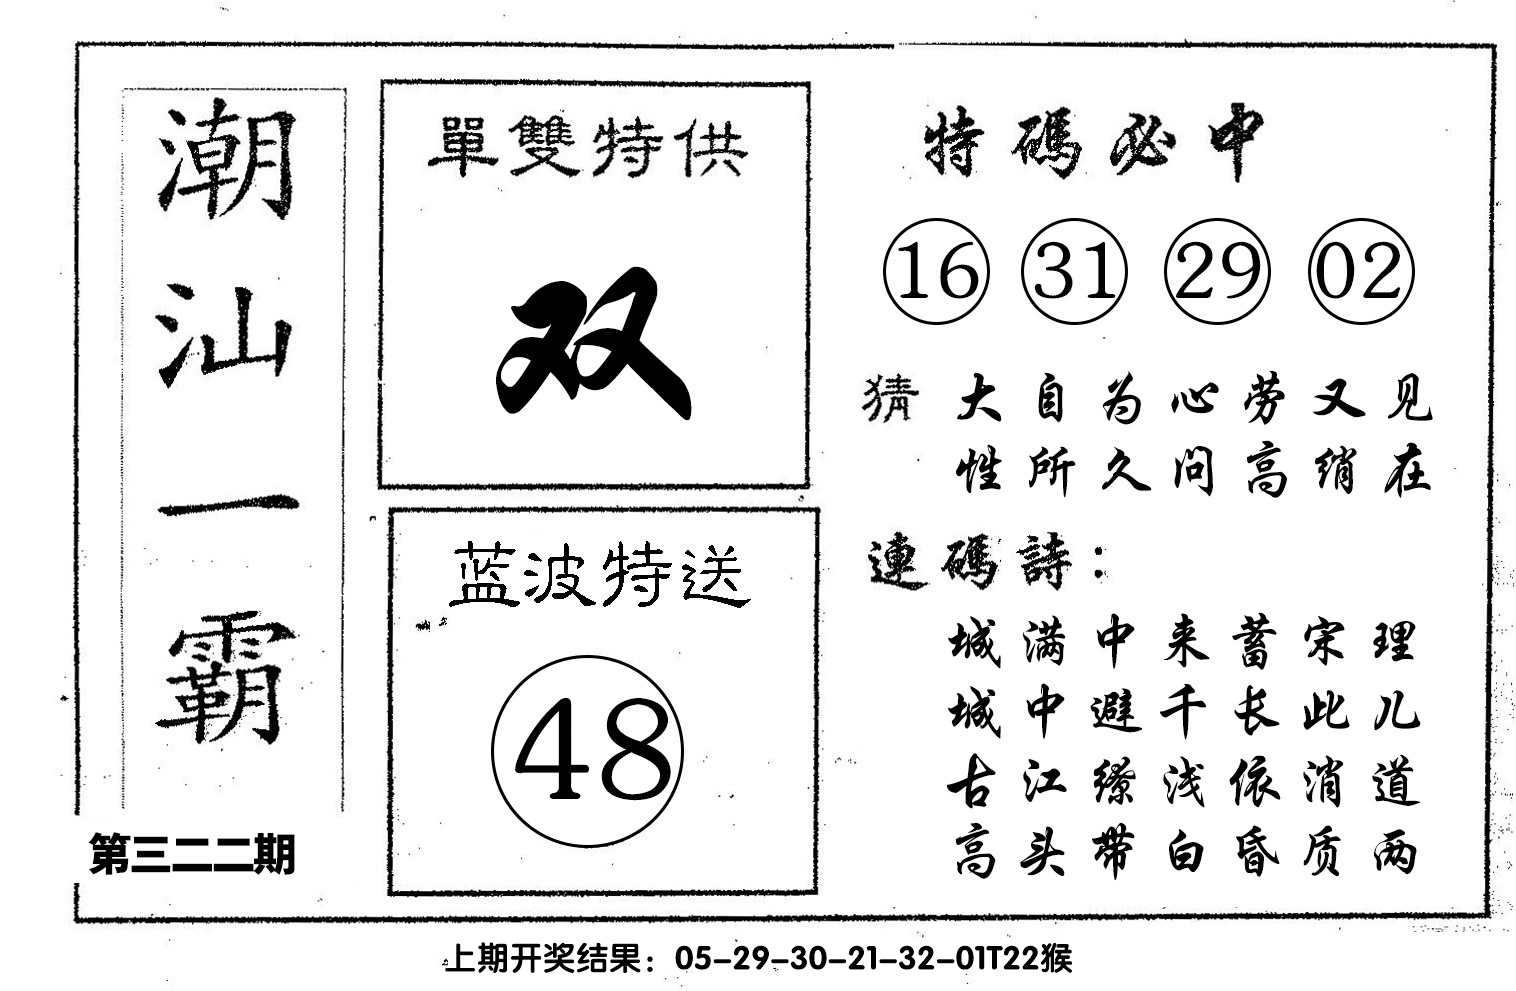 潮汕一霸
第三二二期
單雙特供
双
蓝波特送
48
特碼必中
16 31 29 02
猜 大自为心劳又见
性所久问高绡在
連碼詩：
城满中来蓄宗理
城中避千长此儿
古江缭浅依消道
高头带白昏质两
上期开奖结果：05-29-30-21-32-01T22猴